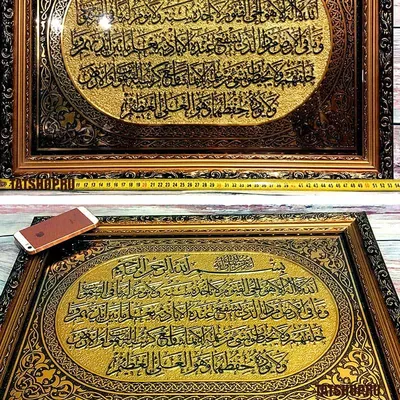 الله لا إله إلا هو الحي القيوم لا تأخذه سنة ولا نوم له ما في السموات
وما في الأرض من ذا الذي يشفع عنده إلا بإذنه يعلم ما بين أيديهم وما
خلفهم ولا يحيطون بشيء من علمه إلا بما شاء وسع كرسيه السموات والأرض
ولا يؤده حفظهما وهو العلي العظيم
TATSHOPRU 12 13 14 15 16 17 18 19 20 21 22 23 24 25 26 27 28 29
بسم الله الرحمن الرحيم
الله لا إله إلا هو الحي القيوم لا تأخذه سنة ولا نوم له ما في السموات
وما في الأرض من ذا الذي يشفع عنده إلا بإذنه يعلم ما بين أيديهم وما
خلفهم ولا يحيطون بشيء من علمه إلا بما شاء وسع كرسيه السموات والأرض
ولا يؤده حفظهما وهو العلي العظيم
TATSHOPRU